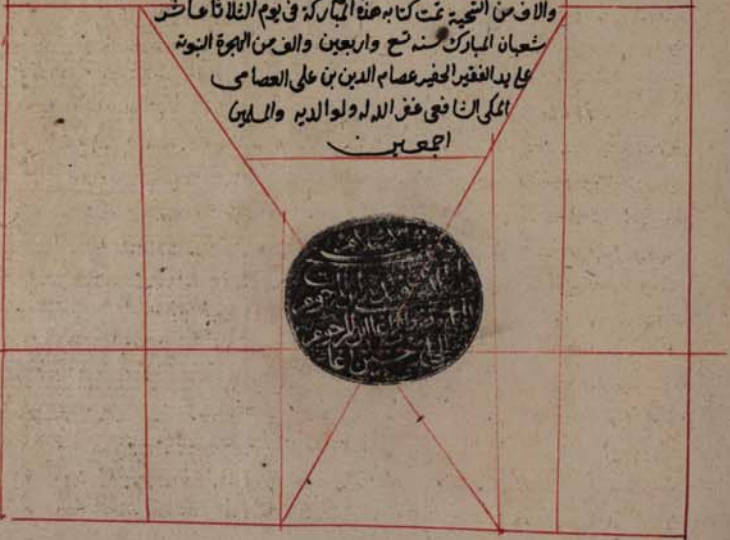 والاف من التحية تمت كتابة هذه المباركة في يوم الثلاثا عاشر
شعبان المبارك سنه تسع واربعين والف من الهجرة النبوية
على يد الفقير الحقير عصام الدين بن علي العصامي
المكي الشافعي غفر الله له ولوالديه والمسلمين
اجمعين
المرحوم
رضوان اغا ابن المرحوم
حسين اغا